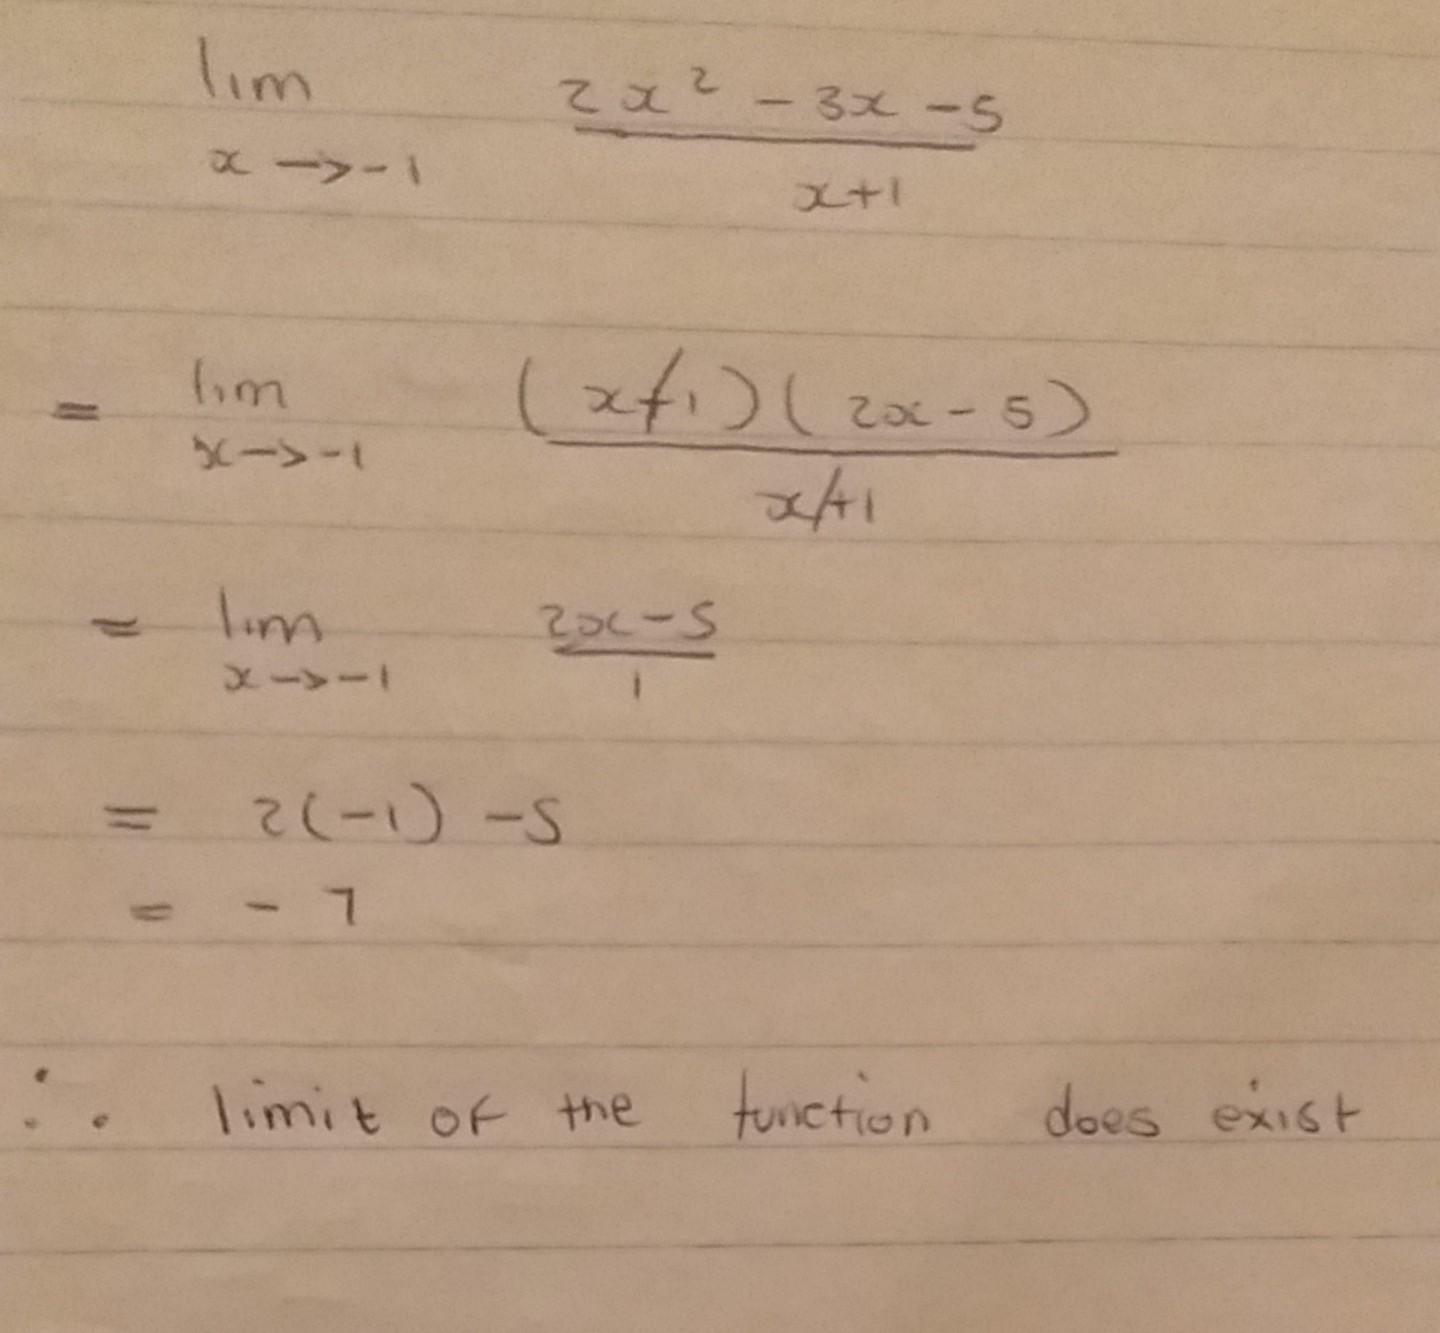 lim 2x² - 3x - 5
x → -1 x+1
= lim (x+1)(2x - 5)
x → -1 x+1
= lim 2x - 5
x → -1 1
= 2(-1) - 5
= - 7
∴ limit of the function does exist